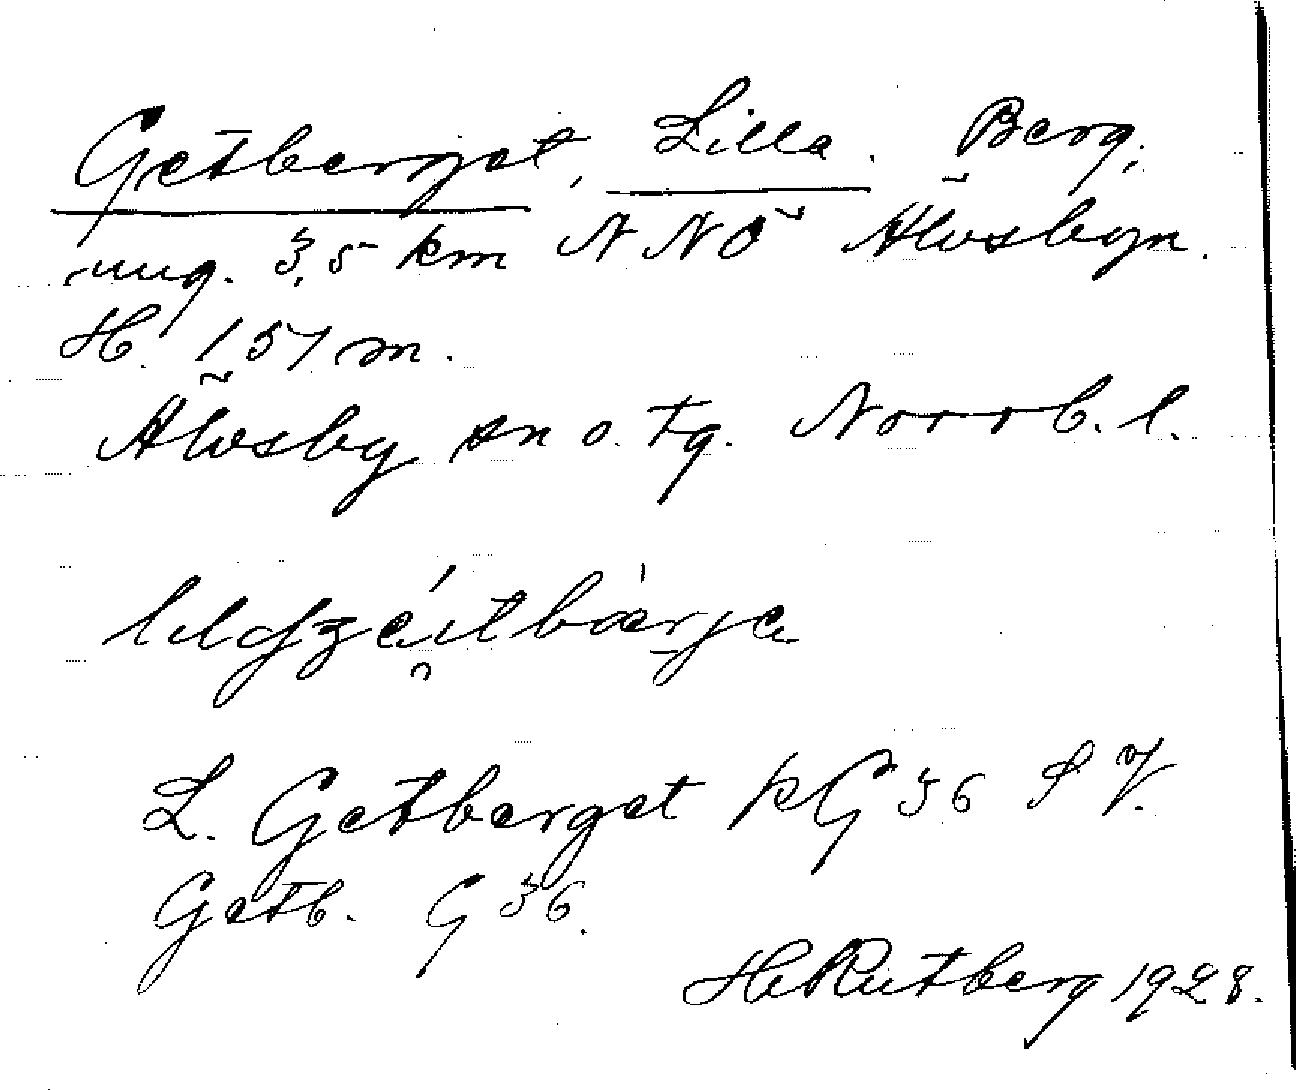 Getberget, Lilla. Berg,
ung. 3,5 km NNÖ Älvsbyn.
H. 157 m.
Älvsby sn o. tg. Norrb. l.
L. Getberget KG 36 S V.
Getb. G 36.
H Rutberg 1928.